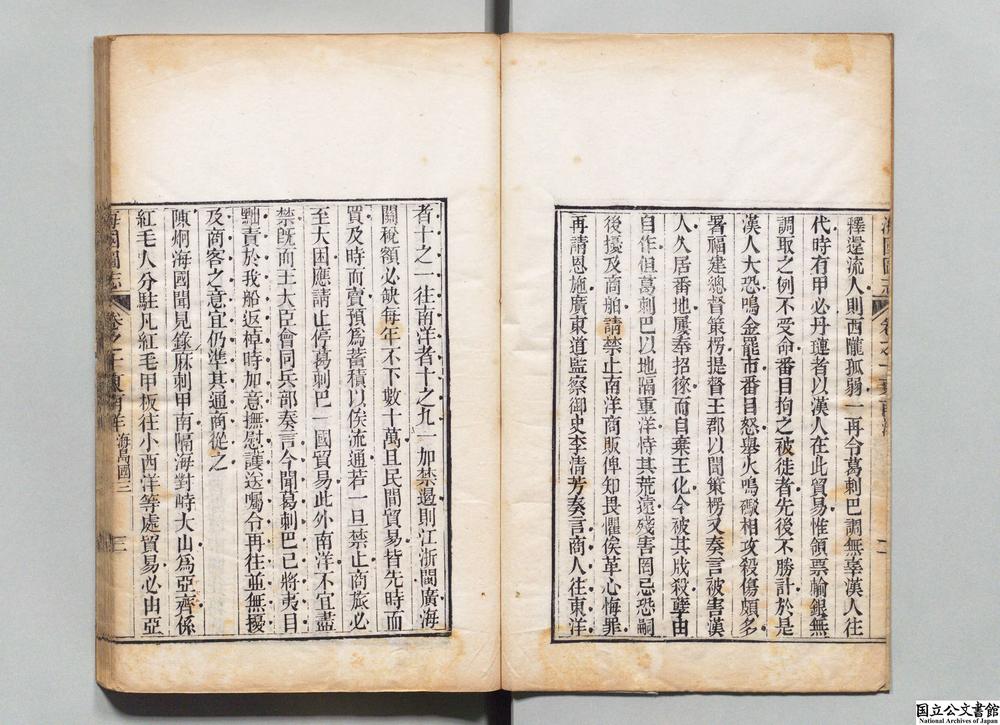 海國圖志
卷之十 東南洋
二
釋還流人則西隴孤弱一再令葛剌巴調無辜漢人往
代時有甲必丹璉者以漢人在此貿易惟領票輸銀無
調取之例不受命番目拘之被徙者先後不勝計於是
漢人大恐鳴金罷市番目怒舉火鳴礮相攻殺傷頗多
署福建總督策楞提督王郡以聞策楞又奏言被害漢
人久居番地屢奉招徠而自棄王化今被其戕殺孽由
自作但葛剌巴以地隔重洋恃其荒遠殘害罔忌恐嗣
後擾及商舶請禁止南洋商販俾知畏懼俟革心悔罪
再請恩施廣東道監察御史李清芳奏言商人往東洋
者十之一往南洋者十之九一加禁遏則江浙閩廣海
關稅額必缺每年不下數十萬且民間貿易皆先時而
買及時而賣預爲蓄積以俟流通若一旦禁止商旅必
至大困應請止停葛剌巴一國貿易此外南洋不宜盡
禁旣而王大臣會同兵部奏言今聞葛剌巴已將夷目
黜責於我船返棹時加意撫慰護送囑令再往並無擾
及商客之意宜仍準其通商從之
陳烱海國聞見錄麻剌甲南隔海對峙大山爲亞齊係
紅毛人分駐凡紅毛甲板往小西洋等處貿易必由亞
海國圖志
卷之十 東南洋 海島國三
三
国立公文書館
National Archives of Japan